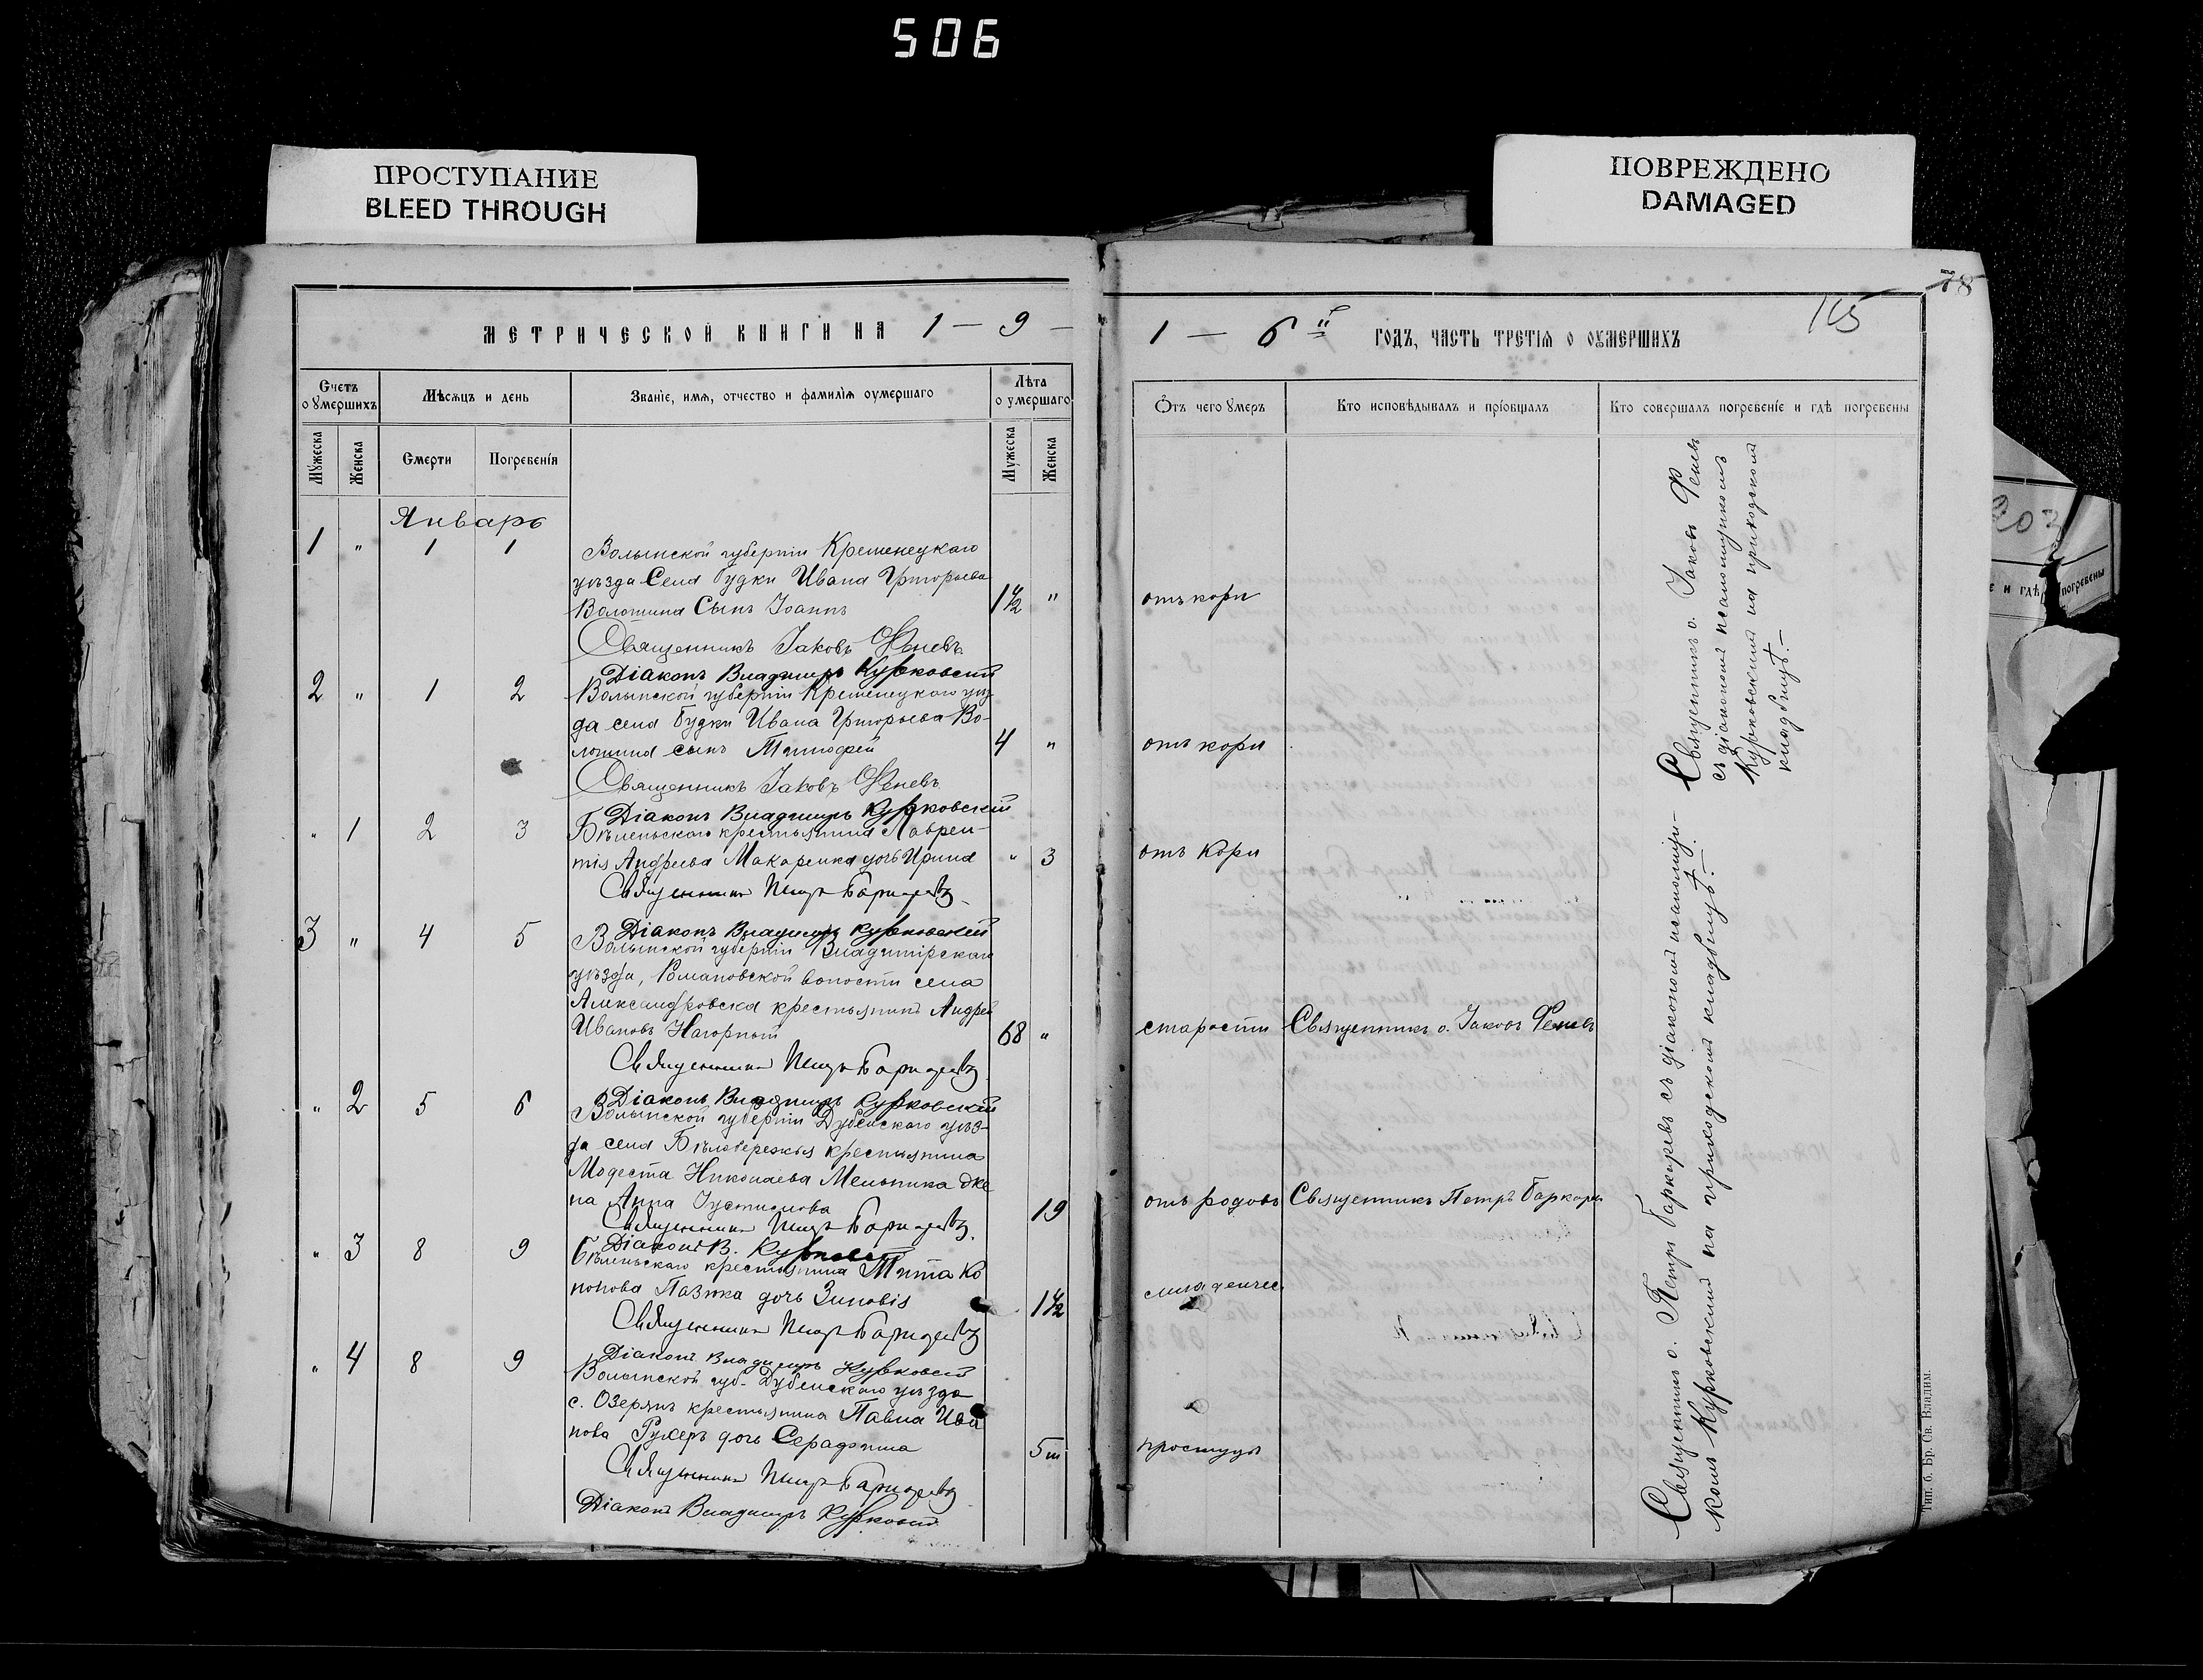 506
ПРОСТУПАНИЕ
BLEED THROUGH
ПОВРЕЖДЕНО
DAMAGED
МЕТРИЧЕСКОЙ КНИГИ НА 1 — 9 —
Счетъ
оумершихъ
Мѣсяцъ и день
Званіе, имя, отчество и фамилія оумершаго
Лѣта
оумершаго
Мужеска
Женска
Смерти
Погребенія
Мужеска
Женска
Январь
1 " 1 1 Волынской губерніи Кременецкаго
уѣзда Села Будки Ивана Григорьева
Волошина Сынъ Іоаннъ 1 1/2 "
Священникъ Іаковъ Феневъ
Діаконъ Владимиръ Курковскій
2 " 1 2 Волынской губерніи Кременецкаго уѣз-
да села Будки Ивана Григорьева Во-
лошина сынъ Тимофей 4 "
Священникъ Іаковъ Феневъ
Діаконъ Владимиръ Курковскій
" 1 2 3 Бѣленьскаго крестьянина Лаврен-
тія Андреева Макаренка дочь Ирина " 3
Священникъ Петръ
Діаконъ Владимиръ Курковскій
3 " 4 5 Волынской губерніи Владимірскаго
уѣзда, волости села
Александровска крестьянинъ Андрей
Ивановъ Нагорный 68 "
Священникъ Петръ
Діаконъ Владимиръ Курковскій
" 2 5 6 Волынской губерніи Дубенскаго уѣз-
да села Бѣлобережья крестьянина
Модеста Николаева Мельника же
на Анна Іустинова 19
Священникъ Петръ
Діаконъ В. Курковскій
" 3 8 9 Бѣленьскаго крестьянина Тита Ко
нонова Пазюка дочь Зиновія 1 1/2
Священникъ Петръ
Діаконъ Владимиръ Курковскій
" 4 8 9 Волынской губ. Дубенскаго уѣзда
с. Озерянъ крестьянина Павла Ива
нова дочь Серафима 5 м
Священникъ Петръ
Діаконъ Владимиръ Курковскій
78
165
1 — 6 й ГОДЪ, ЧАСТЬ ТРЕТІЯ О ОУМЕРШИХЪ
Отъ чего умеръ
Кто исповѣдывалъ и пріобщалъ
Кто совершалъ погребеніе и гдѣ погребены
отъ кори
отъ кори
отъ кори
старости Священникъ о. Іаковъ Феневъ
отъ родовъ Священникъ Петръ
младенчес
простуды
Священникъ о. Іаковъ Феневъ
съ діакономъ псаломщикомъ
Курковскимъ на приходскомъ
кладбищѣ.—
Священникъ о. Петръ съ діакономъ псаломщи-
комъ Курковскимъ на приходскомъ кладбищѣ.—
Тип. б. Бр. Св. Владим.
203
е и гдѣ погребены